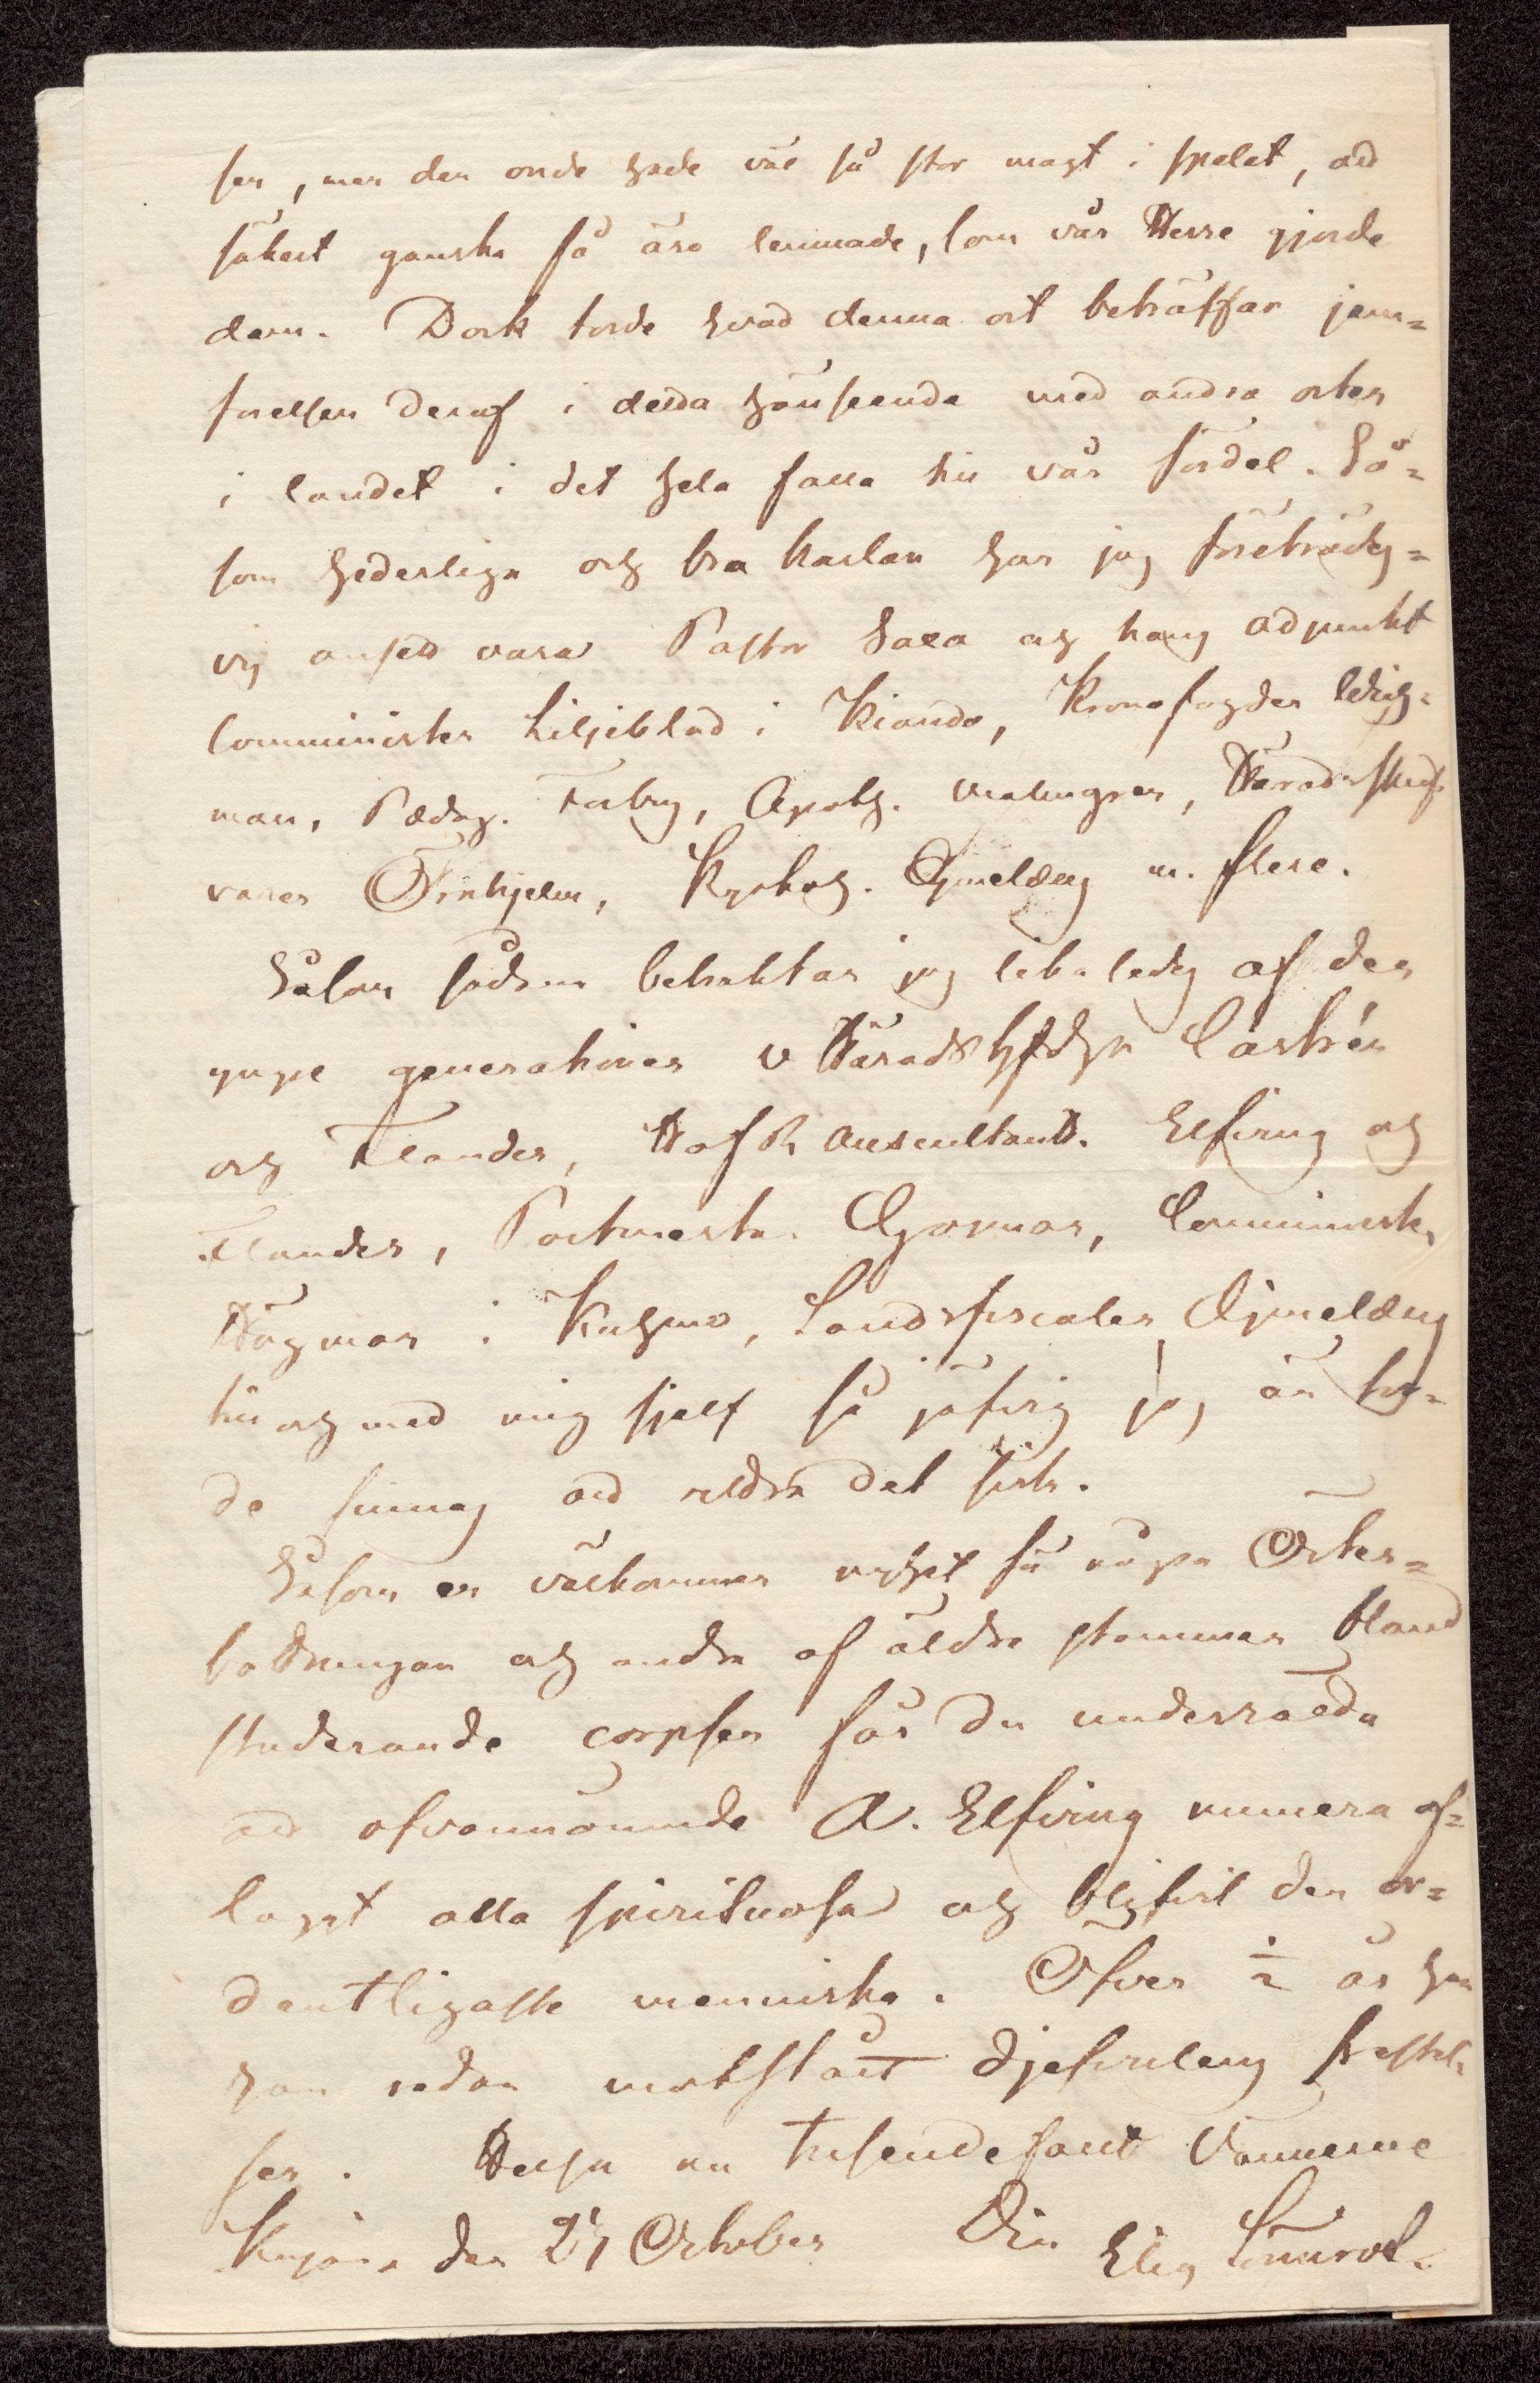 sen, men den onde hade väl så stor magt i spelet, att
säkert ganska få äro lemnade, som vår Herre gjorde
dem. Dock torde hvad denna ort beträffar jem=
förelsen deraf i detta hänseende med andra orter
i landet i det hela falla till vår fördel. Så=
som hederliga och bra karlar har jag företrädes=
vis ansett vara Pastor Sala och hans adjunkt
Comminister Liljeblad i Kianda, Kronofogden Wich=
man, Pædag. Forberg, Apoth. Malmgren, Häradsskrif=
varen Ehrnhjelm, Kyrkoh. Ajmelæus m. flere.
Såsom sådana betraktar jag likaledes af den
yngre generationen v Häradshöfdgn Castrén
och Elander, HofR Auscultant. Elfving och
Elander, Postmester Gummer, Comminist.
Hägman i Kuhmo, Landsfiscalen Ajmelæus
till och med mig sjelf så jäfvig jag än tor=
de finnas att vidtala det sista.
Såsom en välkommen nyhet för några Öster=
bottningar och andra af äldre stammen bland
studerande corpsen får Du underrätta
att ofvannämnde A. Elfving numera af=
lagt alla spirituosa och blifvit den or=
dentligaste menniska. Öfver ½ år har
han redan motstått djefvulens frestel=
ser. Helsa nu tusendefallt Vännerne
Kajana den 21 October Din Elias Lönnrot.